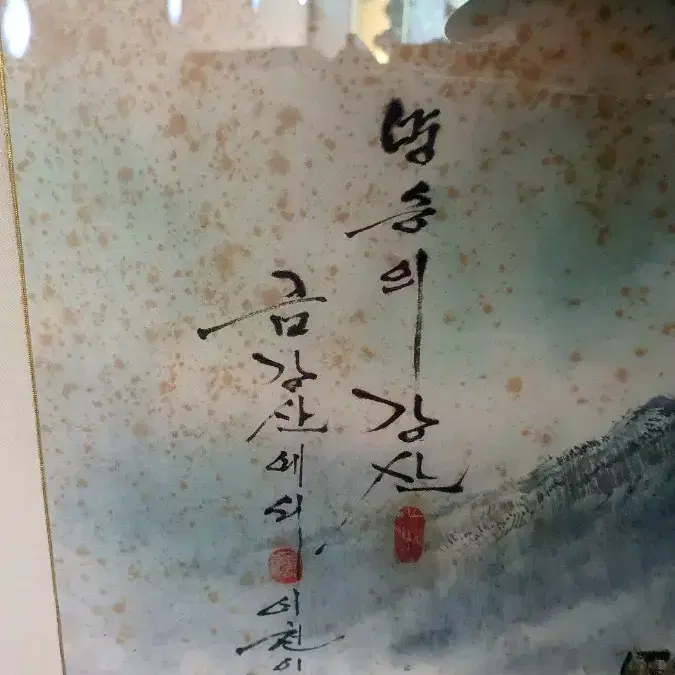 명승의 강산
금강산에서
이천이